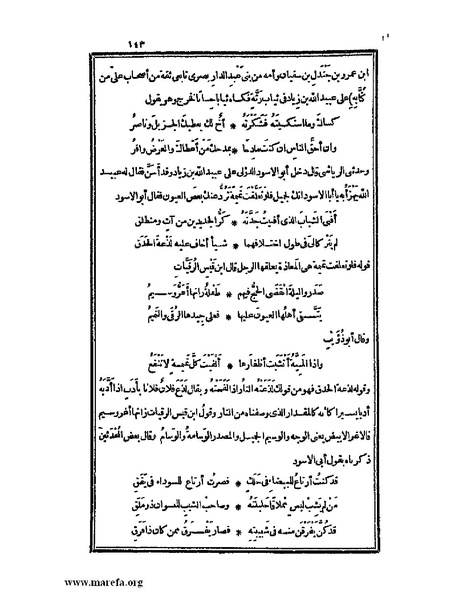 ١٤٣
ابن عمرو بن جندل بن سفيان وأمه من بنى عبد الدار بصرى تابعى ثقة من أصحاب على من
على عبيد الله بن زياد فى ثياب رثة فكساه ثيابا حسانا فخرج وهو يقول
كساك وما استكسيته فشكرته * أخ لك يعطيك الجزيل وناصر
وان أحق الناس ان كنت مادحا * بمدحك من أعطاك والعرض وافر
وحدثنى الرياشى قال دخل أبو الاسود الدؤلى على عبيد الله بن زياد وقد أسن فقال له عبيد
الله يهزأ به يا أبا الاسود انك لجميل فلو تعلقت تميمة ترد عنك بعض العيون فقال أبو الاسود
أفنى الشباب الذى أفنيت جدته * كر الجديدين من آت ومنطلق
لم يتركا لى فى طول اختلافهما * شيأ أخاف عليه لذعة الحدق
قوله فلو تعلقت تميمة هى المعاذة يعلقها الرجل قال ابن قيس الرقيات
صدروا ليلة انقضى الحج فيهم * طفلة زانها أغر وسيم
يتقى أهلها العيون عليها * فعلى جيدها الرقى والتميم
وقال أبو ذؤيب
واذا المنية أنشبت أظفارها * ألفيت كل تميمة لا تنفع
وقوله لذعة الحدق فهو من قولك لذعته النار اذا لفحته ويقال لذع فلان فلانا بأدب اذا أدبه
أدبا يسيرا كأنه كالمقدار الذى وصفناه من النار وقول ابن قيس الرقيات زانها أغر وسيم
فالاغر الابيض يعنى الوجه والوسيم الجميل والمصدر الوسامة والوسام وقال بعض المحدثين
ذكرناه بقول أبى الاسود
قد كنت أرتاع للبيضاء فى حلك * فصرت أرتاع للسوداء فى يقق
من لم يشب ليس مملاقا حليلته * وصاحب الشيب للنسوان ذو ملق
قد كن يفرقن منه فى شبيبته * فصار يفرق ممن كان ذا فرق
www.marefa.org